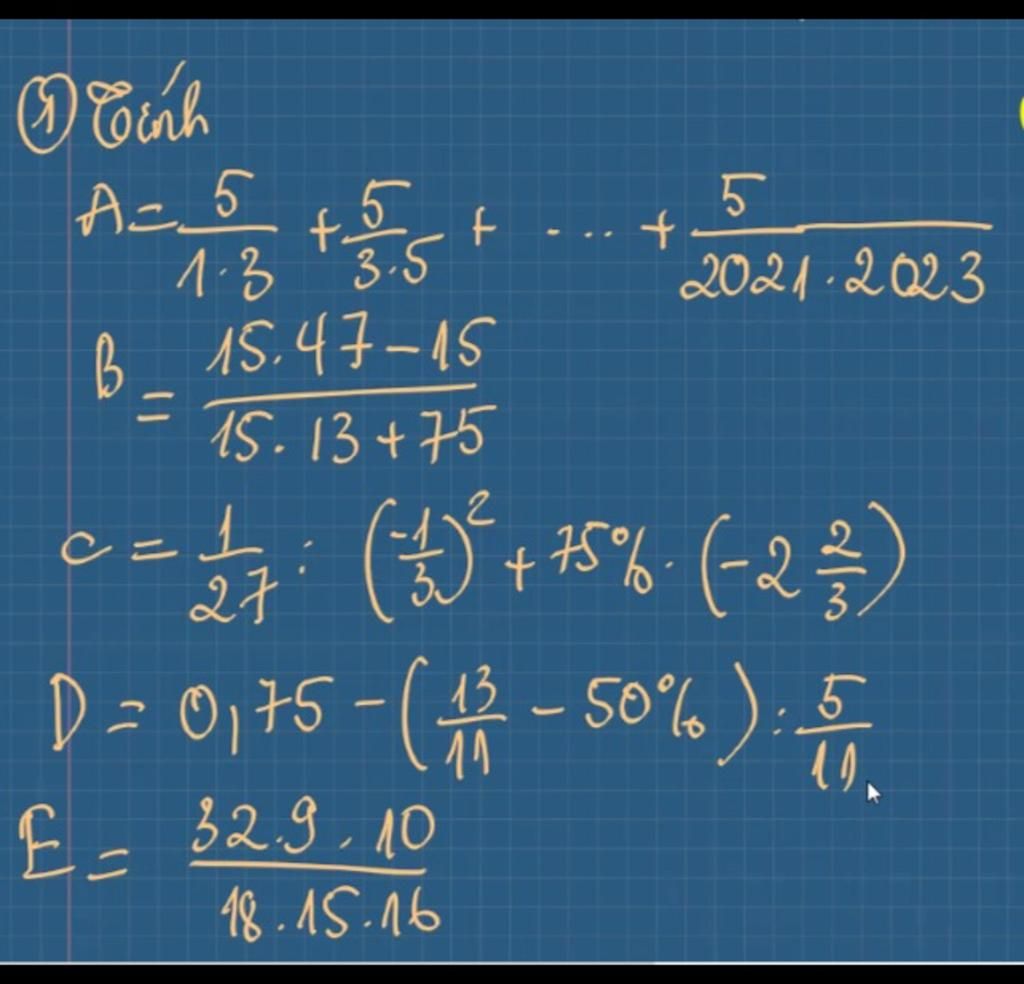 ① Tính
A = 5/1·3 + 5/3·5 + .... + 5/2021·2023
B = 15.47-15/15.13+75
C = 1/27 : (-1/3)² + 75% · (-2 2/3)
D = 0,75 - (13/11 - 50%) : 5/11
E = 32.9.10/18.15.16